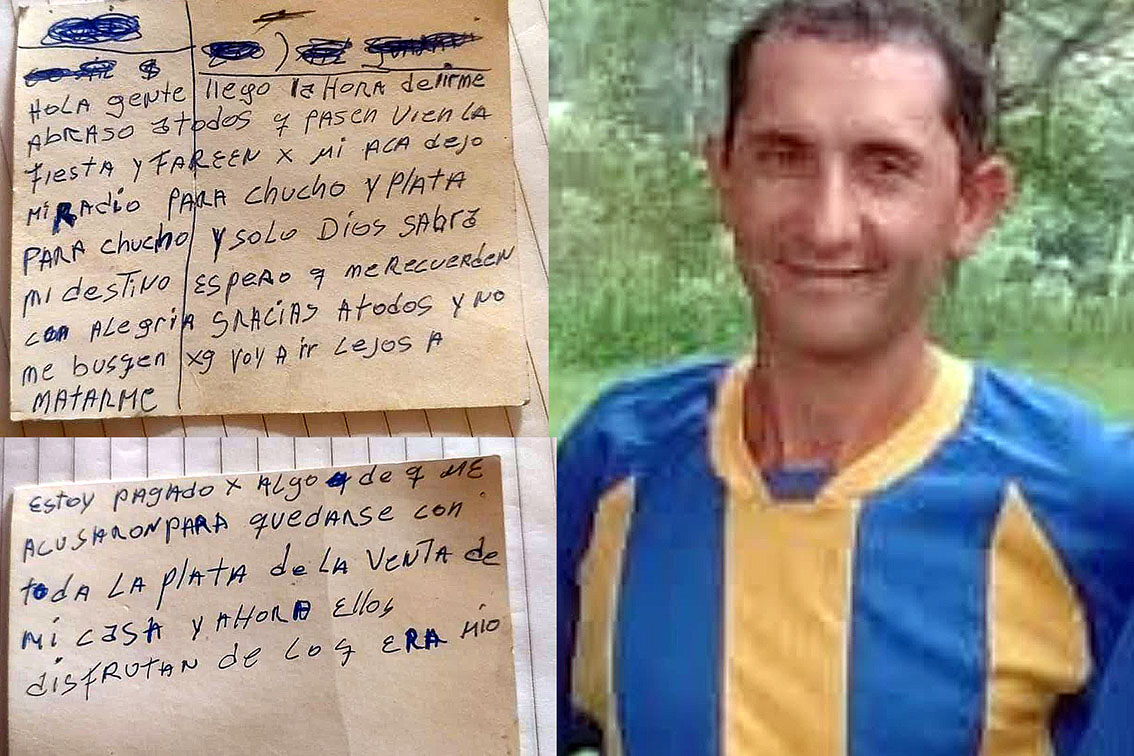 $
HOLA gente llego la HORA de irme
ABRASO atodos q PASEN vien LA
fiesta y FAREEN x mi ACA dejo
mi RAdio PARA chucho y plata
PARA chucho y solo Dios sabra
mi destino espero q me Recuerden
con Alegria gracias Atodos y no
me busqen xq voy A ir Lejos A
MATARME
Estoy pagado x Algo de q me
ACUSARON PARA quedarse con
toda LA plata de LA venta de
mi casa y AHORA Ellos
disfrutan de Lo q ERA mio